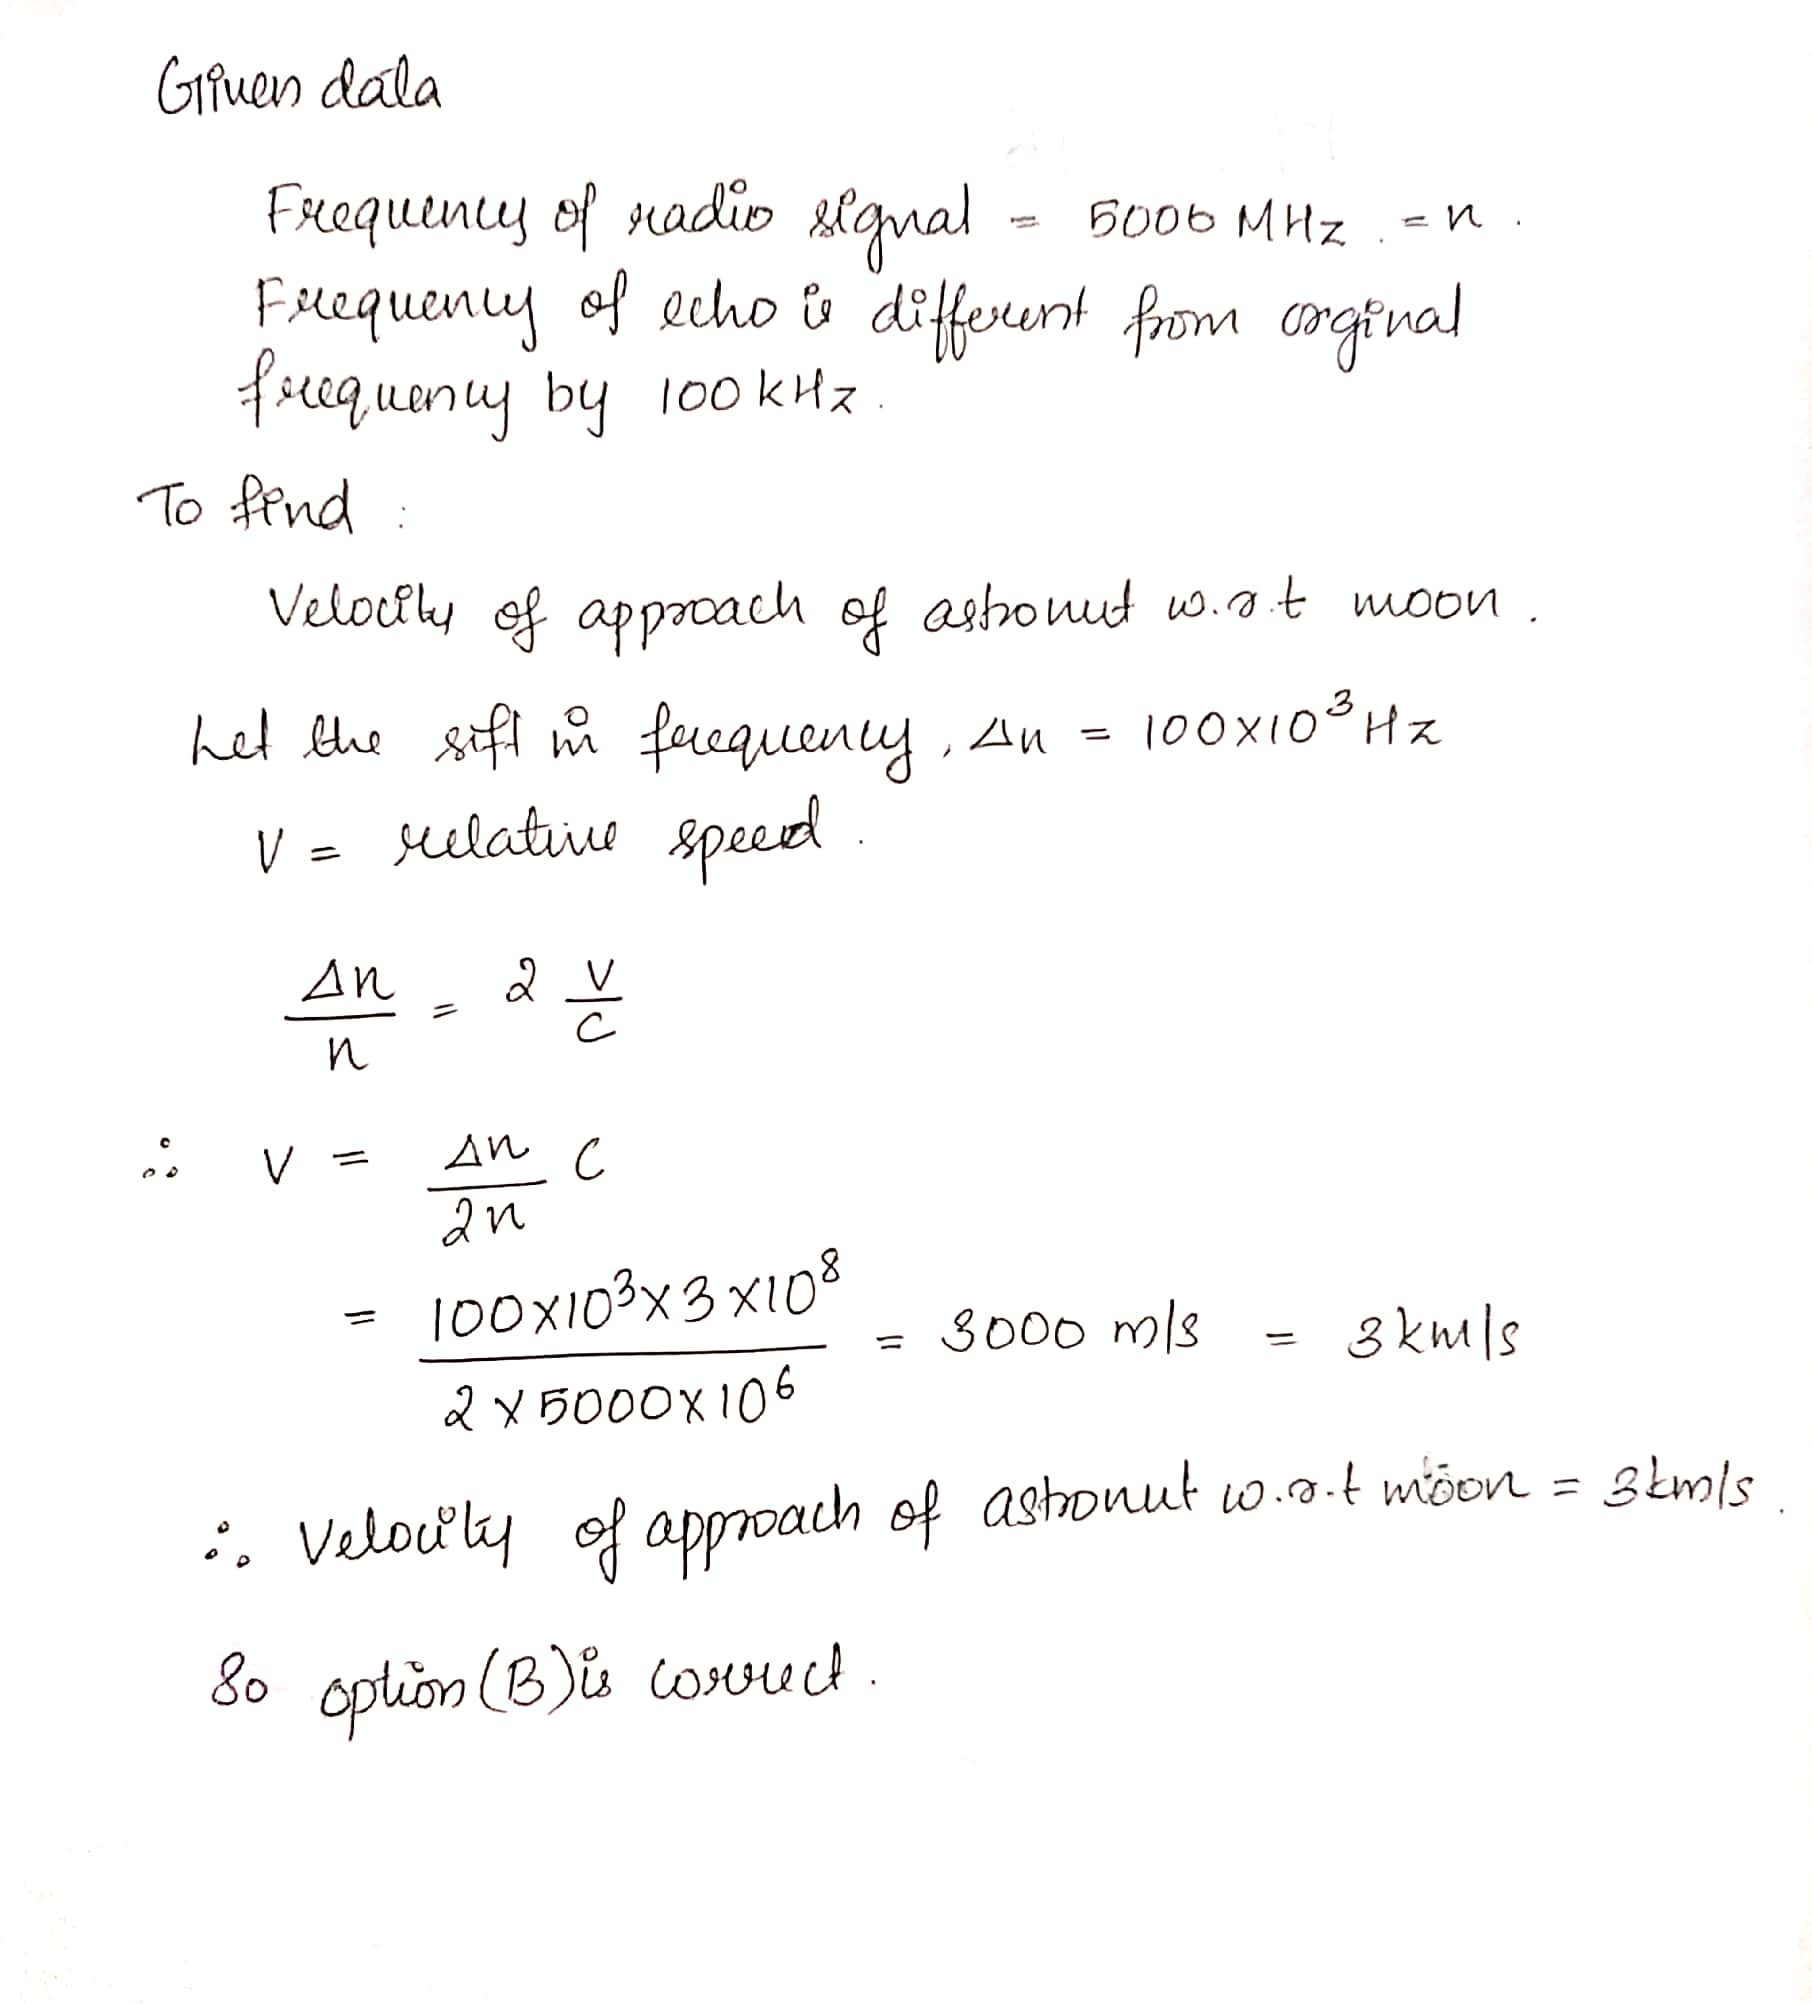 Given data
Frequency of radio signal = 5000 MHz. = n.
Frequency of echo is different from orginal
frequency by 100 kHz.
To find :
Velocity of approach of astronut w.r.t moon.
Let the sift in frequency, Δn = 100×10³ Hz
V = relative speed.
Δn/n = 2 V/C
∴ V = Δn/2n C
= 100×10³×3×10⁸ / 2×5000×10⁶ = 3000 m/s = 3km/s
∴ Velocity of approach of astronut w.r.t moon = 3km/s.
So option (B) is correct.